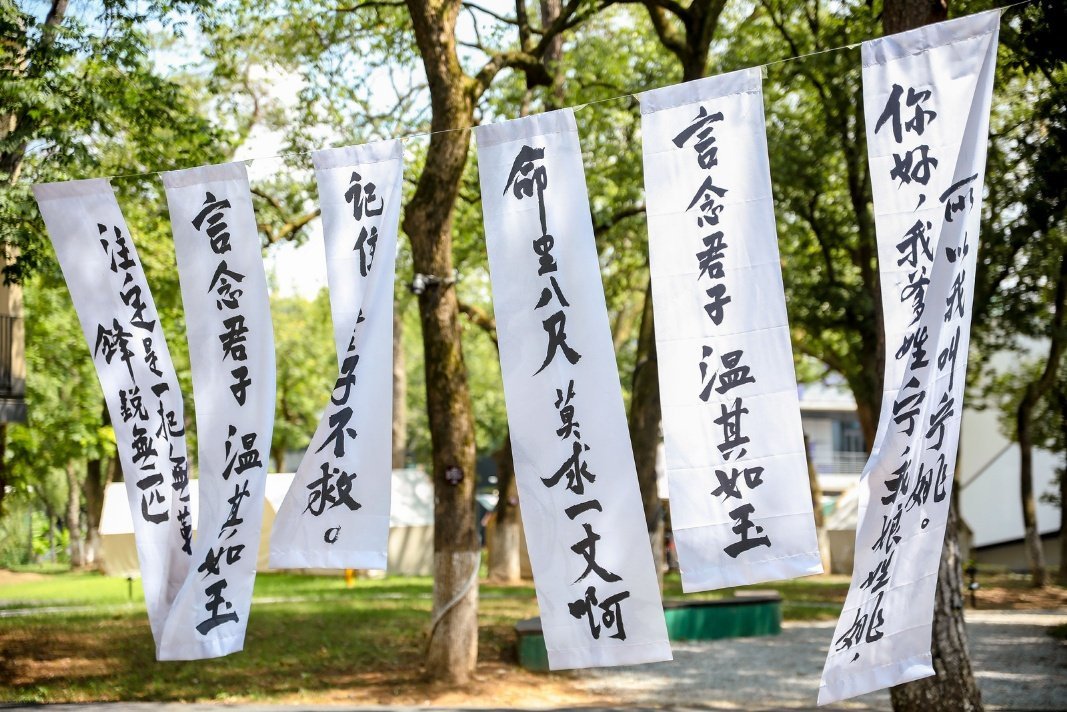 注定是一把無
鋒銳無匹
言念君子 温其如玉
记住
子不救。
命里八尺 莫求一丈啊
言念君子 温其如玉
你好，我爹姓宁，我娘姓姚，
所以我叫宁姚。